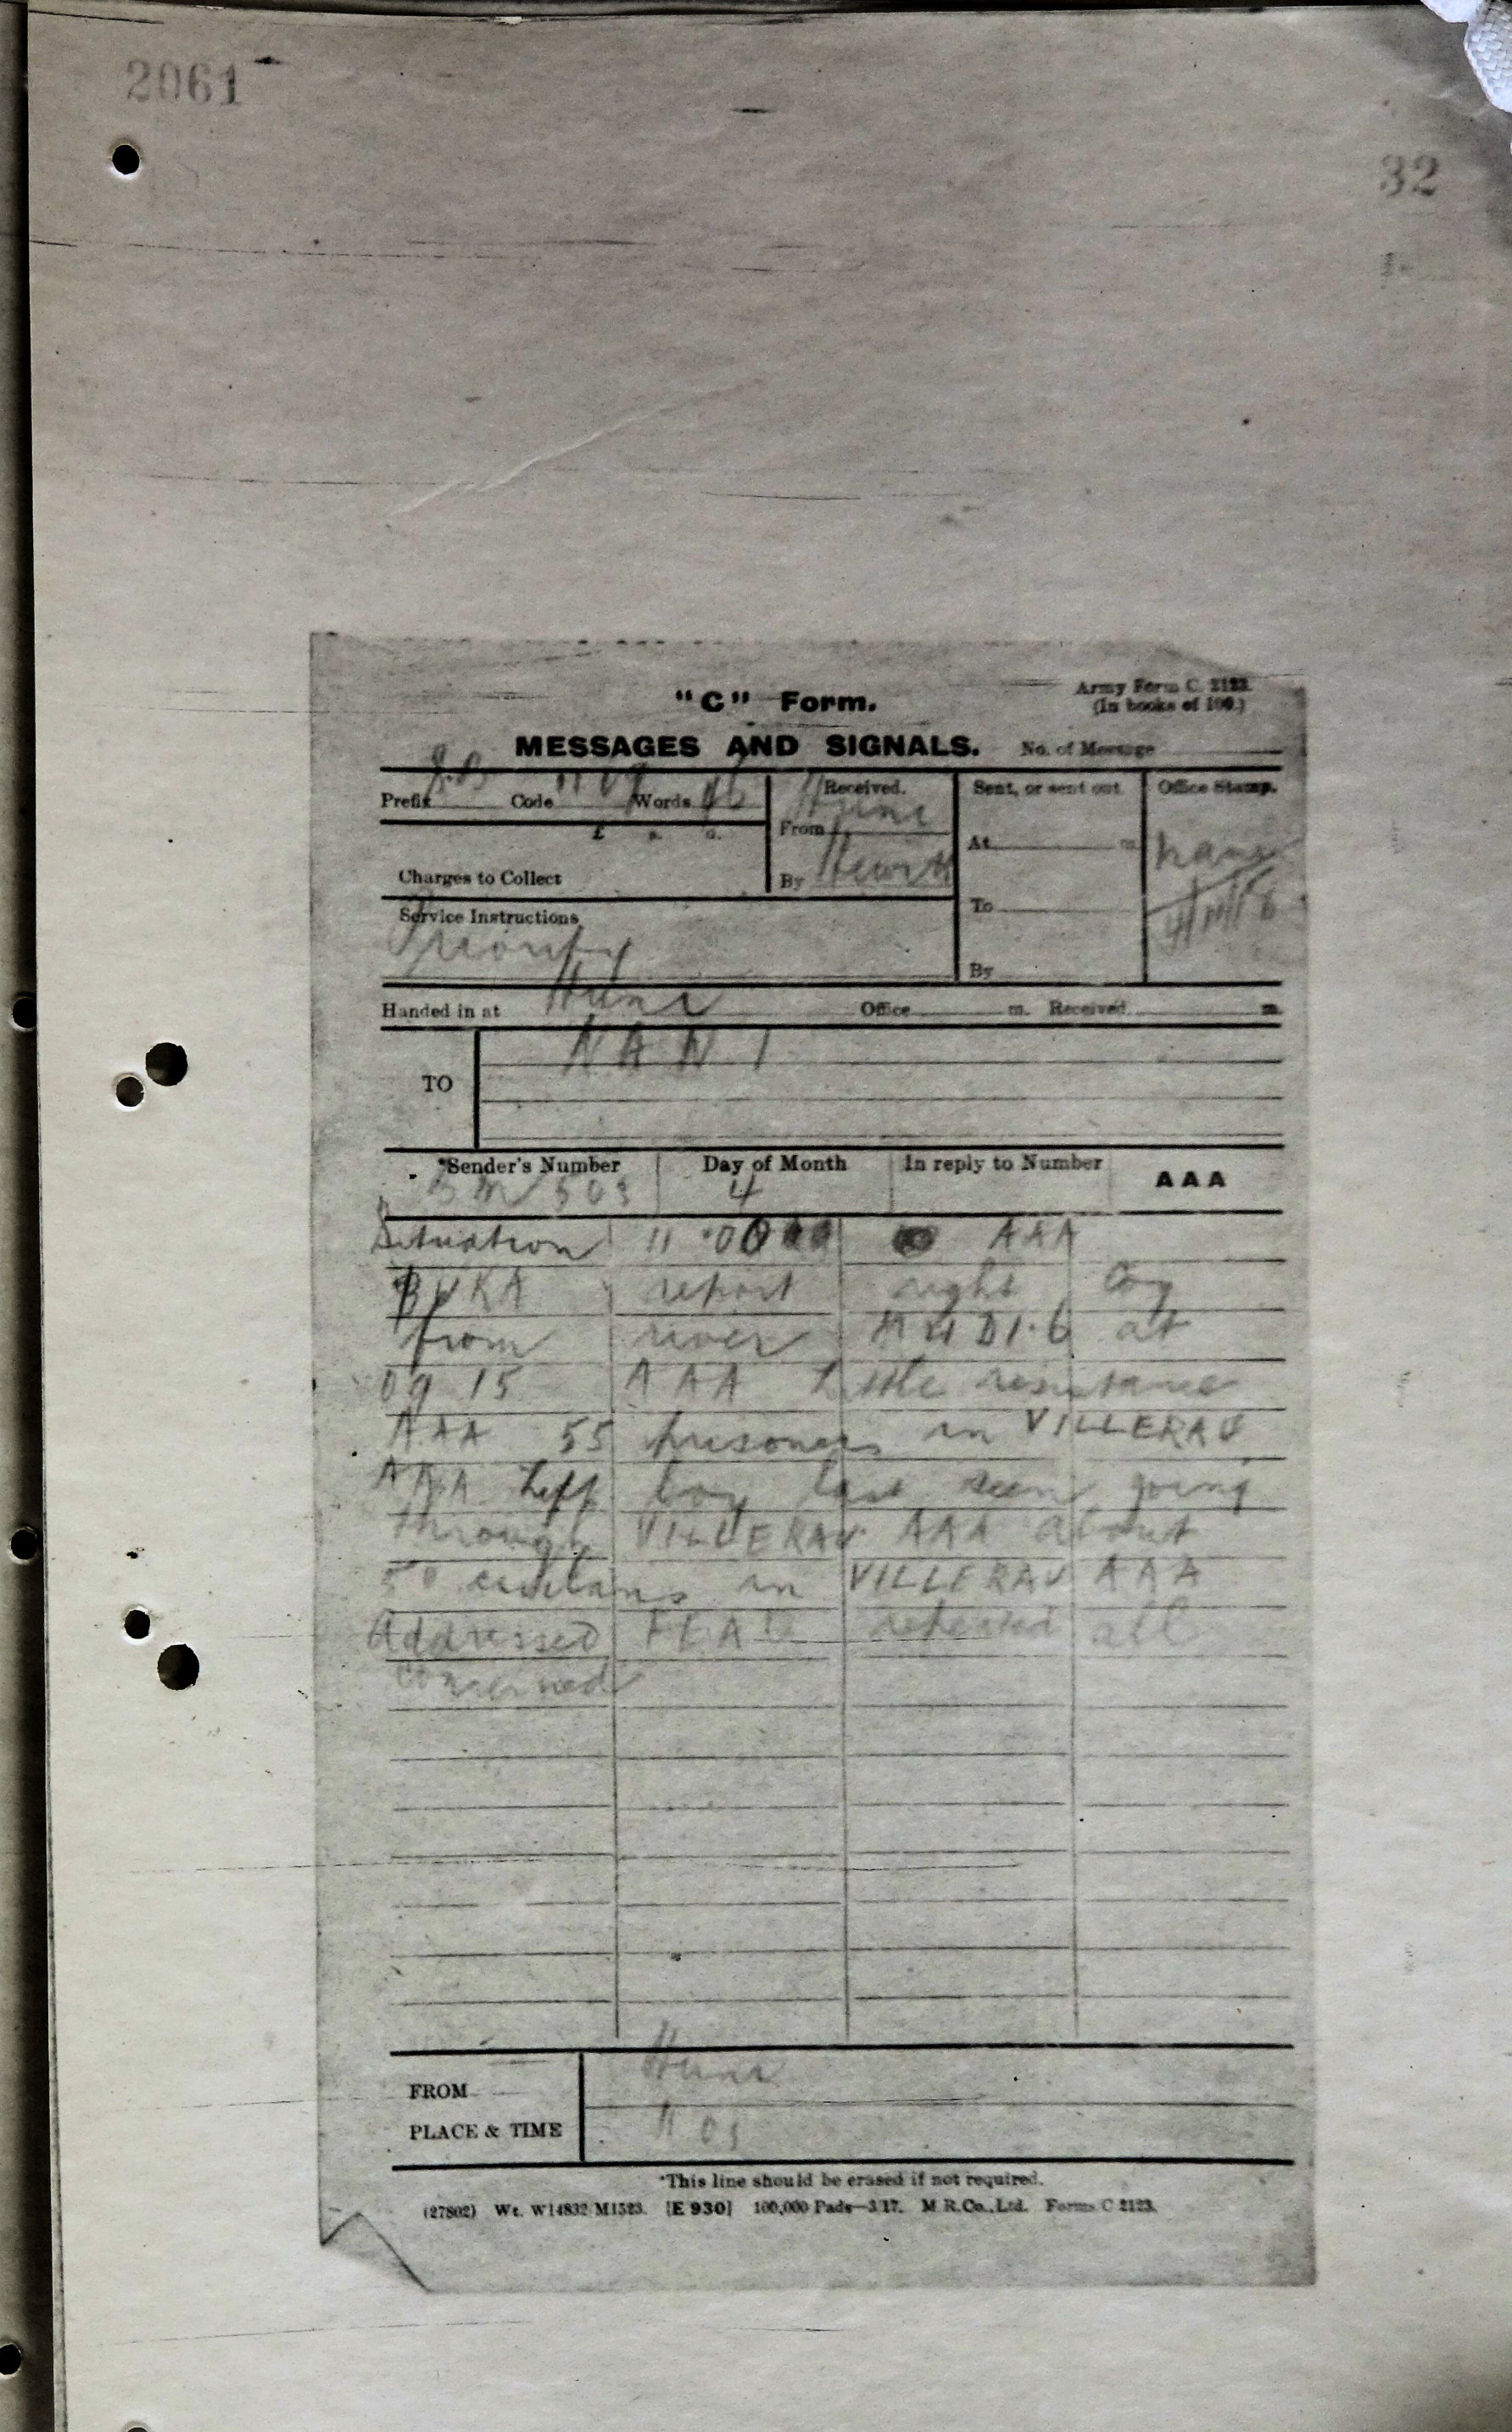 2061
32
"C" Form.
Army Form C. 2123.
(In books of 100.)
MESSAGES AND SIGNALS.
No. of Message
Prefix Code Words 46
Received.
Sent, or sent out
Office Stamp.
£ s. d.
From
At m
Charges to Collect
By
To
Service Instructions
Priority
By
Handed in at Office m. Received m.
TO
NANI
*Sender's Number Day of Month In reply to Number AAA
BM 503 4
Situation 11.00 AAA
BUKA report right Coy
from river D1.6 at
09 15 AAA Little resistance
AAA 55 prisoners in VILLERAU
AAA Left Coy last seen going
through VILLERAU AAA about
50 civilians in VILLERAU AAA
Addressed repeated all
concerned
FROM
PLACE & TIME
*This line should be erased if not required.
(27802) Wt. W14832/M1523. [E 930] 100,000 Pads—3/17. M.R.Co., Ltd. Forms C/2123.